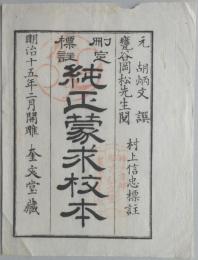 元 胡炳文 譔
甕谷岡松先生閲
村上信忠標註
刪定
標註
純正蒙求校本
明治十五年二月開雕 奎文堂藏